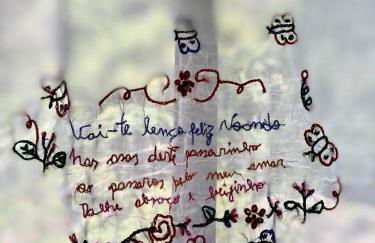 Vai-te lenço feliz Voondo
nas asas deste passarinho
os passares pelo meu amar
Dalhe abraço x beijinho